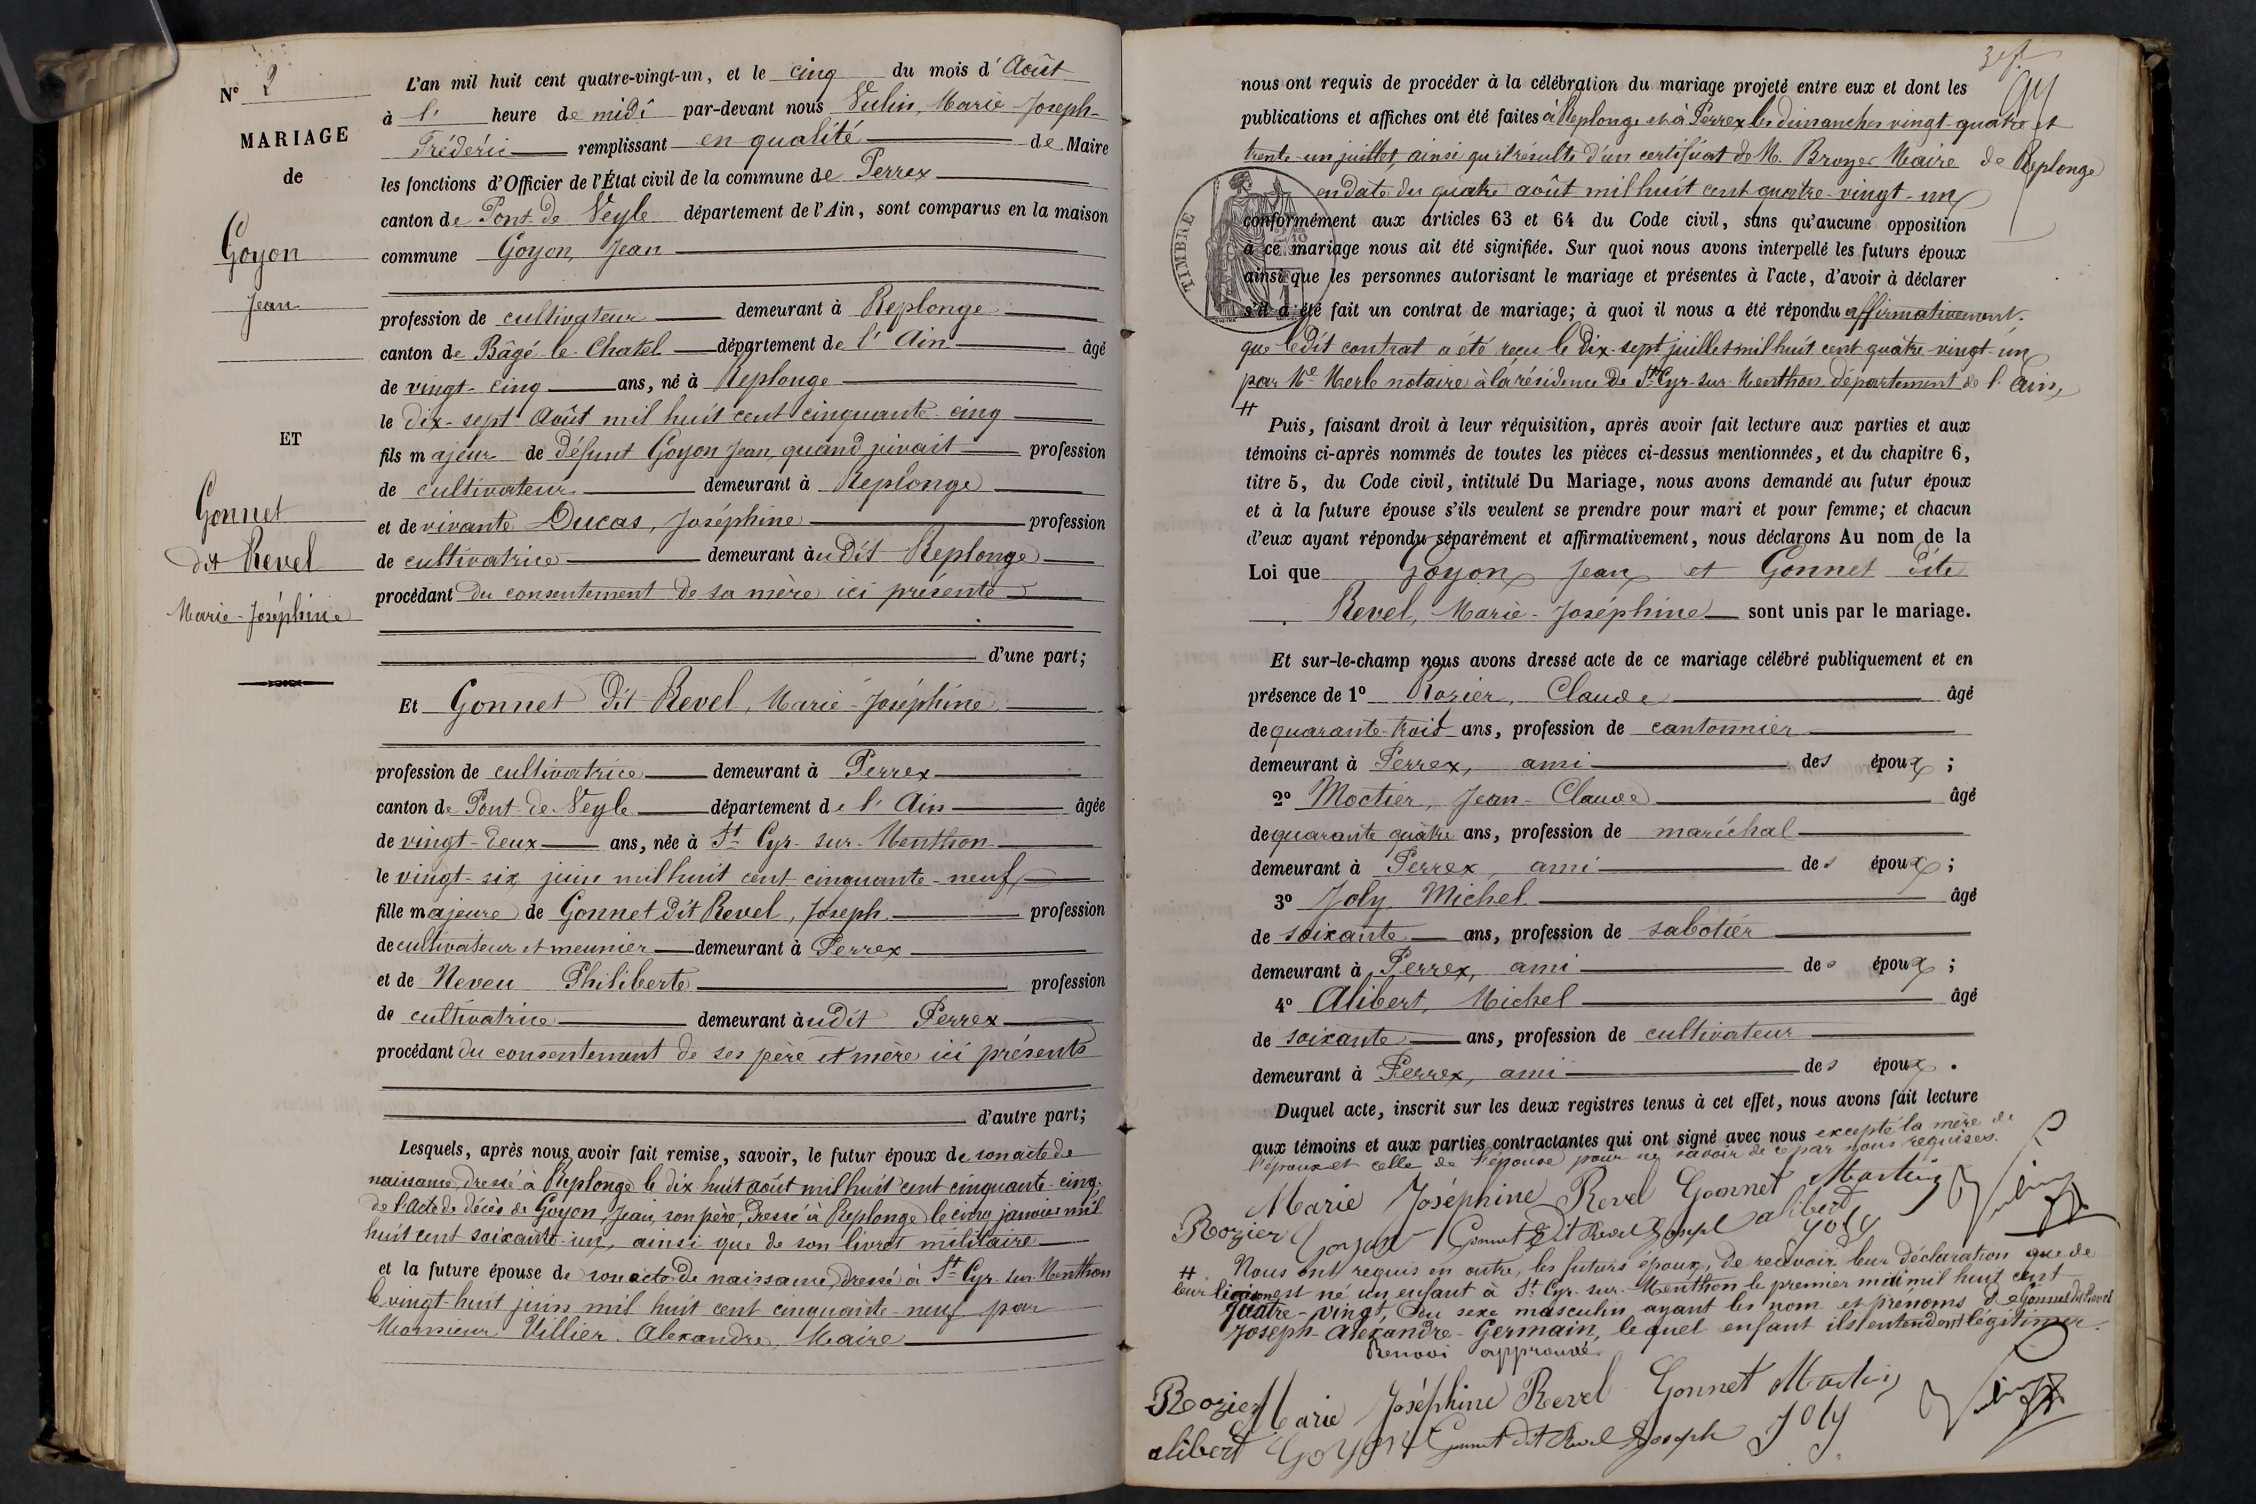 N° 2
MARIAGE
de
Goyon
Jean
ET
Gonnet
dit Revel
Marie-Joséphine
L'an mil huit cent quatre-vingt-un, et le cinq du mois d'Août
à l' heure de midi par-devant nous Vulin, Marie-Joseph-
Frédéric remplissant en qualité de Maire
les fonctions d'Officier de l'État civil de la commune de Perrex
canton de Pont-de-Veyle département de l'Ain, sont comparus en la maison
commune Goyon, Jean
profession de cultivateur demeurant à Replonge
canton de Bâgé-le-Chatel département de l'Ain âgé
de vingt-cinq ans, né à Replonge
le dix-sept Août mil huit cent cinquante-cinq
fils majeur de défunt Goyon Jean, quand vivait profession
de cultivateur demeurant à Replonge
et de vivante Ducas, Joséphine profession
de cultivatrice demeurant àudit Replonge
procédant du consentement de sa mère ici présente
d'une part;
Et Gonnet dit Revel, Marie-Joséphine
profession de cultivatrice demeurant à Perrex
canton de Pont-de-Veyle département de l'Ain âgée
de vingt-deux ans, née à St Cyr-sur-Menthon
le vingt-six juin mil huit cent cinquante-neuf
fille majeure de Gonnet dit Revel, Joseph profession
de cultivateur et meunier demeurant à Perrex
et de Neveu Philiberte profession
de cultivatrice demeurant àudit Perrex
procédant du consentement de ses père et mère ici présents
d'autre part;
Lesquels, après nous avoir fait remise, savoir, le futur époux de son acte de
naissance, dressé à Replonge le dix-huit août mil huit cent cinquante-cinq.
de l'acte de décès de Goyon, Jean, son père, dressé à Replonge le cinq janvier mil
huit cent soixante-un, ainsi que de son livret militaire
et la future épouse de son acte de naissance, dressé à St Cyr-sur-Menthon
le vingt-huit juin mil huit cent cinquante-neuf par
Monsieur Villier Alexandre, Maire
nous ont requis de procéder à la célébration du mariage projeté entre eux et dont les
publications et affiches ont été faites à Replonge et à Perrex les dimanches vingt-quatre et
trente-un juillet, ainsi qu'il résulte d'un certificat de M. Broyer Maire de Replonge
en date du quatre août mil huit cent quatre-vingt-un
TIMBRE
conformément aux articles 63 et 64 du Code civil, sans qu'aucune opposition
à ce mariage nous ait été signifiée. Sur quoi nous avons interpellé les futurs époux
ainsi que les personnes autorisant le mariage et présentes à l'acte, d'avoir à déclarer
s'il a été fait un contrat de mariage; à quoi il nous a été répondu affirmativement.
que ledit contrat a été reçu le dix-sept juillet mil huit cent quatre-vingt-un
par Me Merle notaire à la résidence de St Cyr-sur-Menthon, département de l'Ain,
#
Puis, faisant droit à leur réquisition, après avoir fait lecture aux parties et aux
témoins ci-après nommés de toutes les pièces ci-dessus mentionnées, et du chapitre 6,
titre 5, du Code civil, intitulé Du Mariage, nous avons demandé au futur époux
et à la future épouse s'ils veulent se prendre pour mari et pour femme; et chacun
d'eux ayant répondu séparément et affirmativement, nous déclarons Au nom de la
Loi que Goyon, Jean et Gonnet dite
Revel, Marie-Joséphine sont unis par le mariage.
Et sur-le-champ nous avons dressé acte de ce mariage célébré publiquement et en
présence de 1° Rozier, Claude âgé
de quarante-trois ans, profession de cantonnier
demeurant à Perrex, ami des époux;
2° Moctier, Jean-Claude âgé
de quarante quatre ans, profession de maréchal
demeurant à Perrex, ami des époux;
3° Joly Michel âgé
de soixante ans, profession de sabotier
demeurant à Perrex, ami des époux;
4° Alibert, Michel âgé
de soixante ans, profession de cultivateur
demeurant à Perrex, ami des époux.
Duquel acte, inscrit sur les deux registres tenus à cet effet, nous avons fait lecture
aux témoins et aux parties contractantes qui ont signé avec nous excepté la mère de
l'époux et celle de l'épouse pour ne savoir de ce par nous requises.
Marie Joséphine Revel Gonnet
Rozier Goyon Gonnet dit Revel Joseph alibert Joly
# Nous ont requis en outre, les futurs époux, de recevoir leur déclaration que de
leur liaison est né un enfant à St Cyr-sur-Menthon le premier mai mil huit cent
quatre-vingt, du sexe masculin ayant les nom et prénoms de Gonnet dit Revel
Joseph-Alexandre-Germain, lequel enfant ils entendent légitimer.
Renvoi approuvé.
Rozier Marie Joséphine Revel Gonnet
alibert Goyon Gonnet dit Revel Joseph Joly